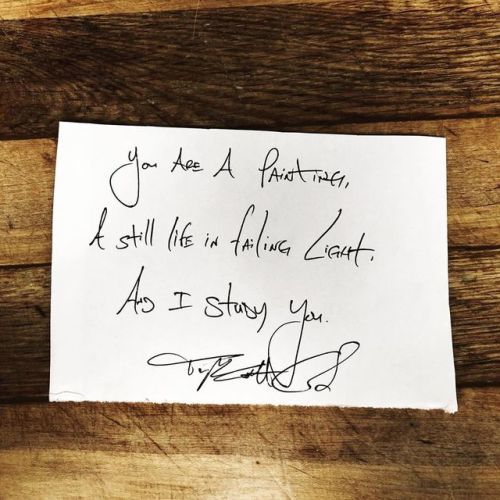 You Are A Painting,
A still life in failing Light.
And I study you.